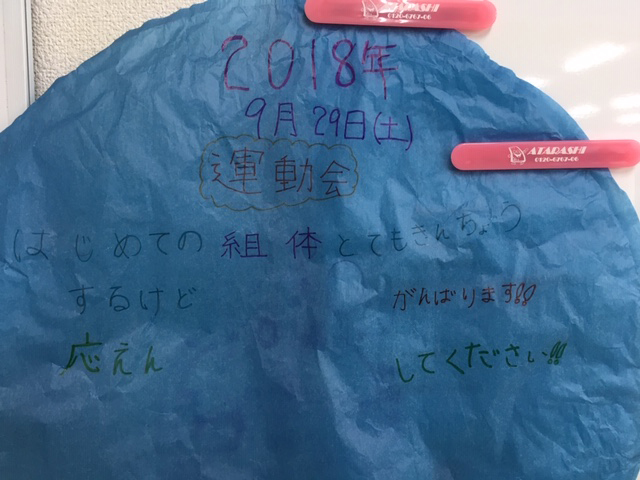 ATABASHI
0120-0202-06
2018年
9月29日(土)
ATABASHI
0120-0202-06
運動会
はじめての組体とてもきんちょう
するけど がんばります!!
応えん してください!!